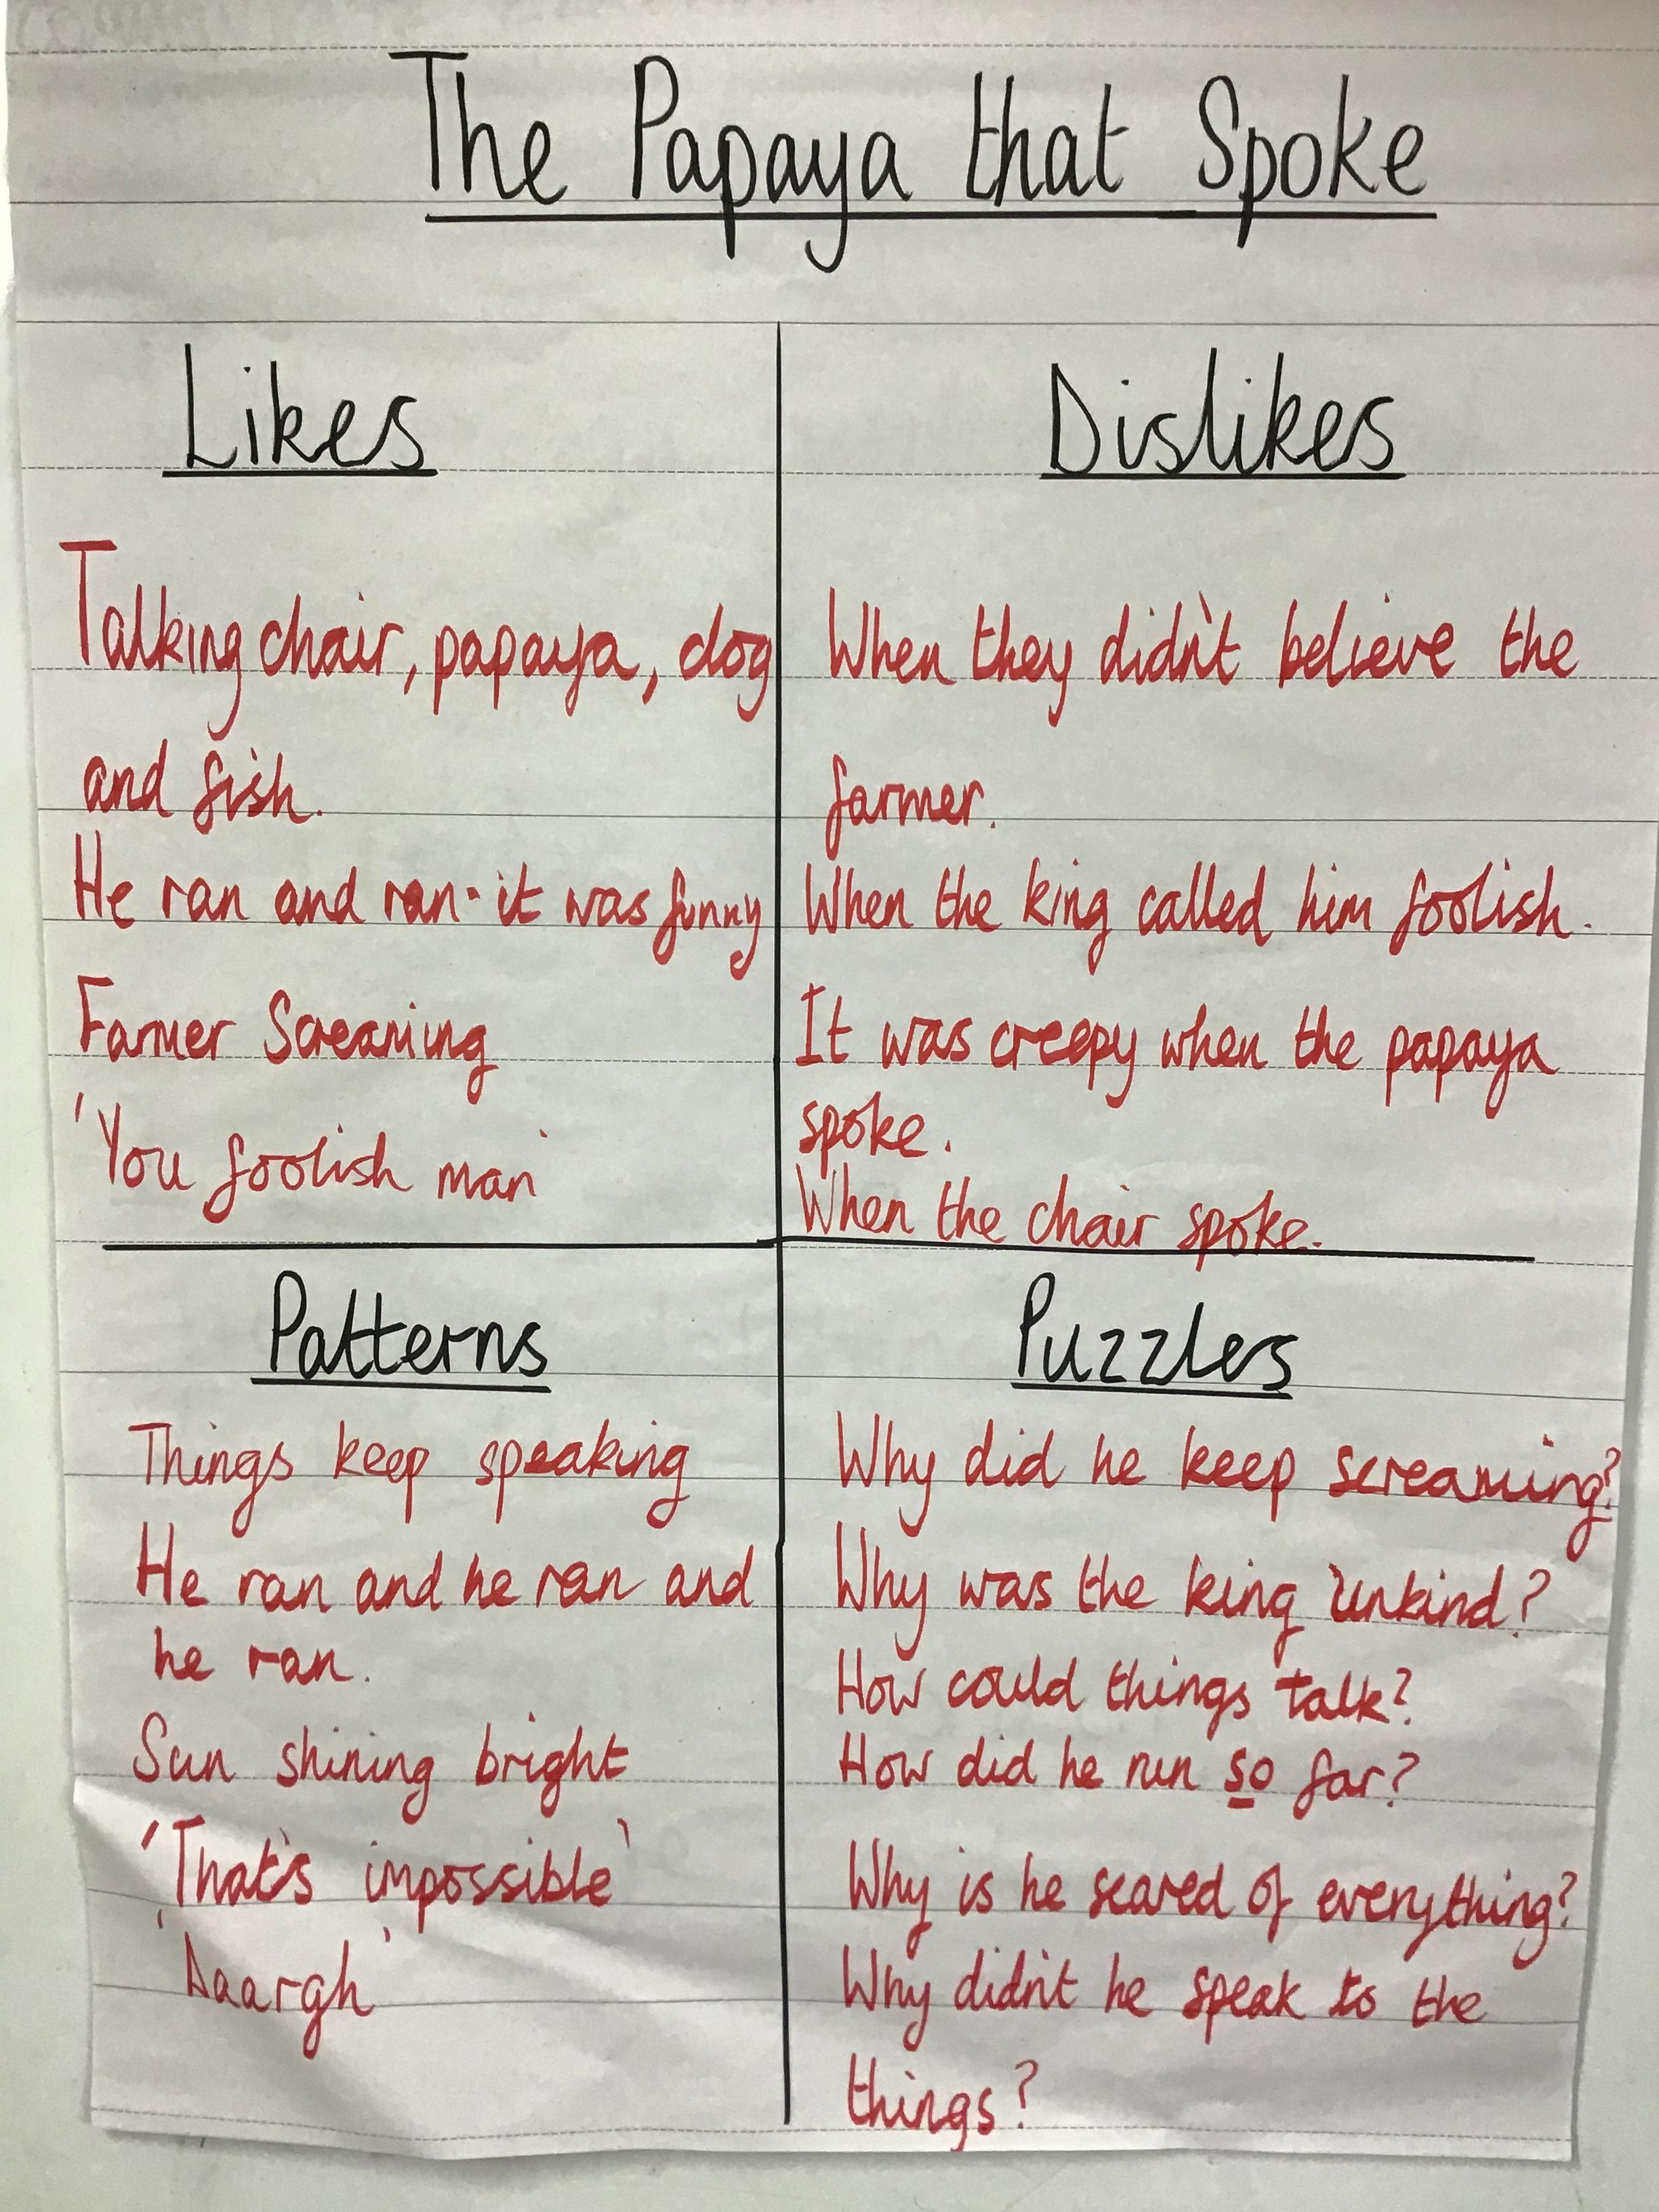 The Papaya that Spoke
Likes
Talking chair, papaya, dog
and fish.
He ran and ran - it was funny
Farmer Screaming
'You foolish man'
Dislikes
When they didn't believe the
farmer.
When the king called him foolish.
It was creepy when the papaya
spoke.
When the chair spoke.
Patterns
Things keep speaking
He ran and he ran and
he ran.
Sun shining bright
'That's impossible'
'Aaargh'
Puzzles
Why did he keep screaming?
Why was the king unkind?
How could things talk?
How did he run so far?
Why is he scared of everything?
Why didn't he speak to the
things?